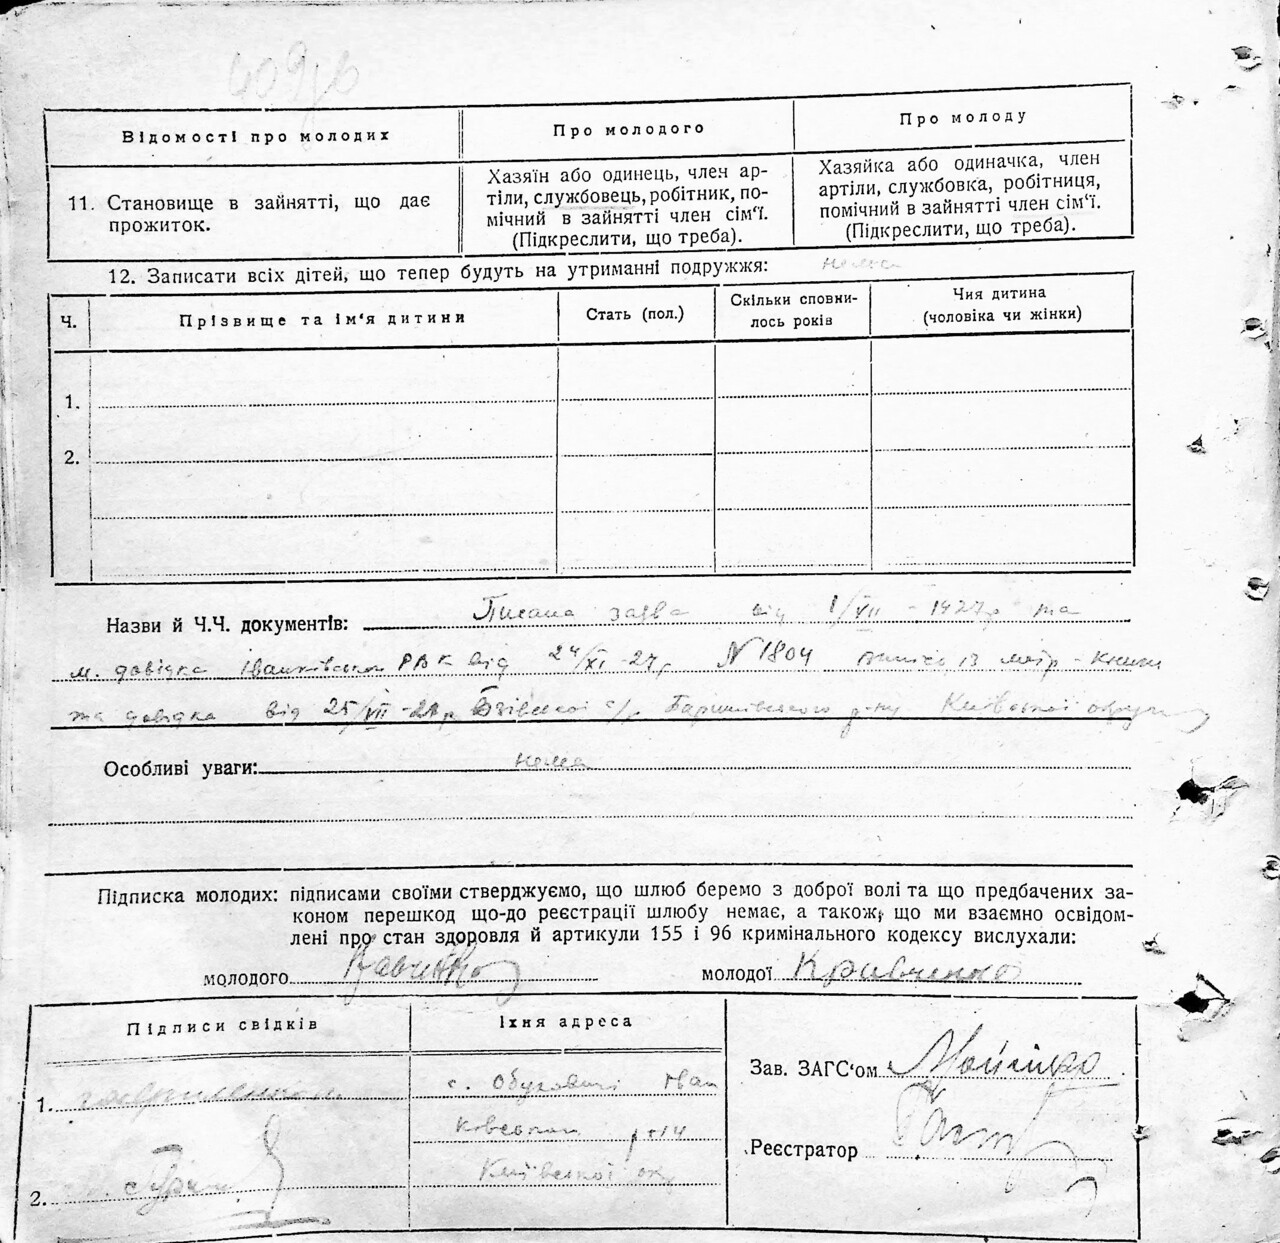 Відомості про молодих
Про молодого
Про молоду
11. Становище в зайнятті, що дає
прожиток.
Хазяїн або одинець, член ар-
тіли, службовець, робітник, по-
мічний в зайнятті член сім‘ї.
(Підкреслити, що треба).
Хазяйка або одиначка, член
артіли, службовка, робітниця,
помічний в зайнятті член сім‘ї.
(Підкреслити, що треба).
12. Записати всіх дітей, що тепер будуть на утриманні подружжя: нема
Ч.
Прізвище та ім‘я дитини
Стать (пол.)
Скільки сповни-
лось років
Чия дитина
(чоловіка чи жінки)
1.
2.
Назви й Ч.Ч. документів: Писана заява від 1/VII - 1927р та
довідка Іванківськои РВК від 24/XI-27р N 1804
та довідка від 25/VII С/р Баришівського р-ну Київської округи
Особливі уваги: нема
Підписка молодих: підписами своїми стверджуємо, що шлюб беремо з доброї волі та що предбачених за-
коном перешкод що-до реєстрації шлюбу немає, а також, що ми взаємно освідом-
лені про стан здоровля й артикули 155 і 96 кримінального кодексу вислухали:
молодого
молодої Кравченко
Підписи свідків
Їхня адреса
1.
с. Обуховичі Іван
ківськои
2.
Київської окр
Зав. ЗАГС‘ом
Реєстратор